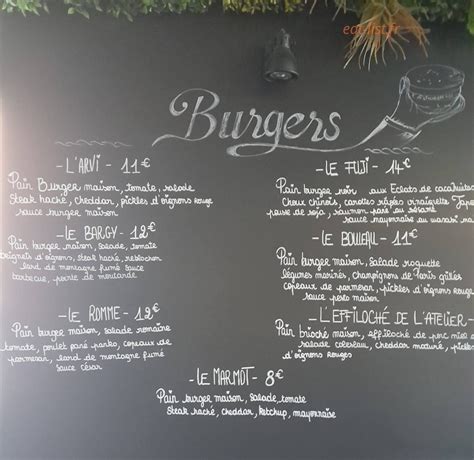 eat-list.fr
Burgers
- L'ARVI - 11€
Pain Burger maison, tomate, salade
Steak haché, cheddar, pickles d'oignons rouge
sauce burger maison
- LE BARGY - 12€
Pain burger maison, salade, tomate
beignets d'oignons, steak haché, reblochon
lard de montagne fumé sauce
barbecue, pointe de moutarde
- LE ROMME - 12€
Pain burger maison, salade romaine
tomate, poulet pané panko, copeaux de
parmesan, lard de montagne fumé
sauce césar
- LE FUJI - 14€
Pain burger noir aux Éclats de cacahuètes
Choux chinois, carottes râpées vinaigrette
pousse de soja, saumon pané au sésame
sauce mayonnaise au wasabi
- LE BOULEAU - 11€
Pain burger maison, Salade roquette
légumes marinés, champignons de Paris grillés
copeaux de parmesan, pickles d'oignons rouges
sauce pesto maison
- L'EFFILOCHÉ DE L'ATELIER -
Pain brioché maison, effiloché de porc
salade coleslaw, cheddar maturé, pickles
d'oignons rouges
- LE MARMOT - 8€
Pain burger maison, salade, tomate
Steak haché, cheddar, ketchup, mayonnaise